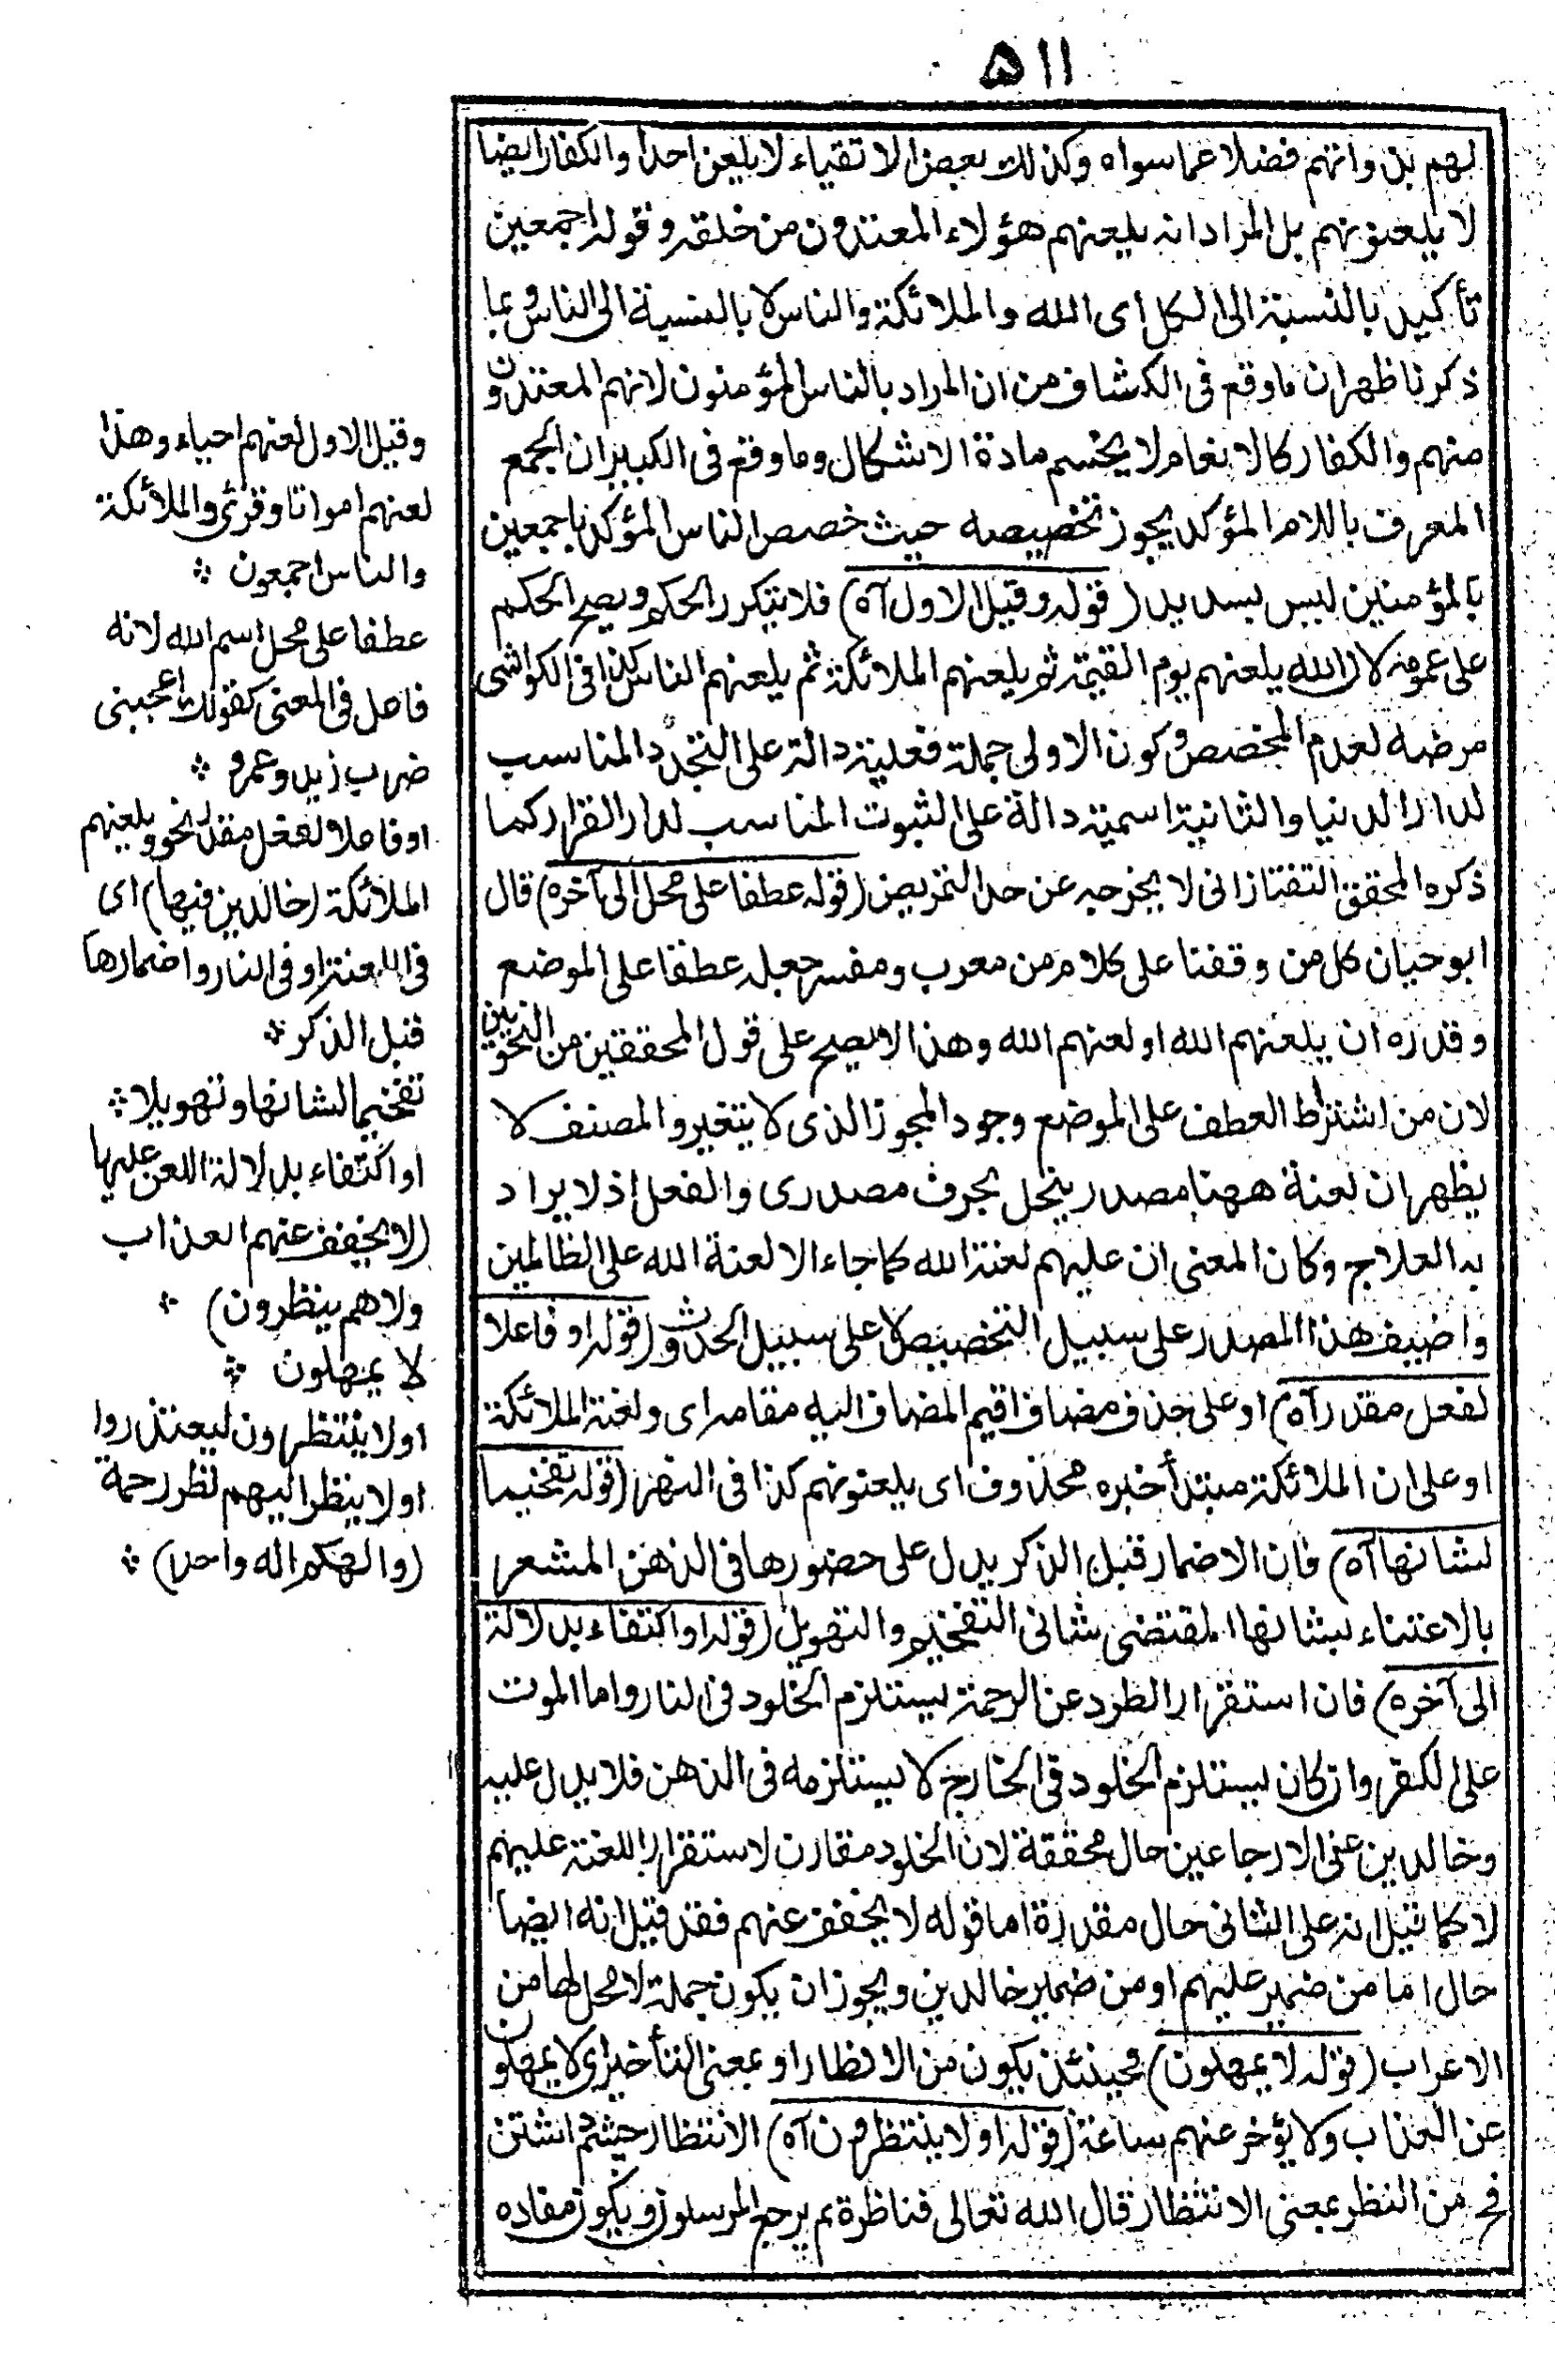 ٥١١
لهم بذواتهم فضلا عما سواه وكذلك بعض الاتقياء لا يلعن احدا والكفار ايضا
لا يلعنونهم بل المراد انه يلعنهم هؤلاء المعتدون من خلقه وقوله اجمعين
تأكيد بالنسبة الى الكل اى الله والملائكة والناس لا بالنسبة الى الناس وبما
ذكرنا ظهران ما وقع فى الكشاف من ان المراد بالناس المؤمنون لانهم المعتدون
منهم والكفار كالانعام لا يحسم مادة الاشكال وما وقع فى الكبير ان الجمع
المعرف باللام المؤكد يجوز تخصيصه حيث خصص الناس المؤكد باجمعين
بالمؤمنين ليس بسديد (قوله وقيل الاول آه) فلا يتكرر الحكم ويصح الحكم
على عمومه لان الله يلعنهم يوم القيمة ثم يلعنهم الملائكة ثم يلعنهم الناس كذا فى الكواشى
مرضه لعدم المخصص وكون الاولى جملة فعلية دالة على التجدد المناسب
لدار الدنيا والثانية اسمية دالة على الثبوت المناسب لدار القرار كما
ذكره المحقق التفتازانى لا يخرجه عن حد التمريض (قوله عطفا على محل الى آخره) قال
ابو حيان كل من وقفنا على كلامه من معرب ومفسر جعله عطفا على الموضع
وقدره ان يلعنهم الله او لعنهم الله وهذا لا يصح على قول المحققين من النحويين
لان من اشتراط العطف على الموضع وجود المجوز الذى لا يتغير والمصنف لا
يظهر ان لعنة ههنا مصدر ينحل بحرف مصدرى والفعل اذ لا يراد
به العلاج وكان المعنى ان عليهم لعنة الله كما جاء الا لعنة الله على الظالمين
واضيف هذا المصدر على سبيل التخصيص لا على سبيل الحدوث (قوله او فاعلا
لفعل مقدر آه) او على حذف مضاف اقيم المضاف اليه مقامه اى ولعنة الملائكة
او على ان الملائكة مبتدأ خبره محذوف اى يلعنونهم كذا فى النهر (قوله تفخيما
لشانها آه) فان الاضمار قبل الذكر يدل على حضورها فى الذهن المشعر
بالاعتناء بشانها المقتضى شانى التفخيم والتهويل (قوله او اكتفاء بدلالة
الى آخره) فان استقرار الطرد عن الرحمة يستلزم الخلود فى النار واما الموت
على الكفر وان كان يستلزم الخلود فى الخارج لا يستلزمه فى الذهن فلا يدل عليه
وخالدين على الارجاعين حال محققة لان الخلود مقارن لاستقرار اللعنة عليهم
لا كما قيل انه على الثانى حال مقدرة اما قوله لا يخفف عنهم فقد قيل انه ايضا
حال اما من ضمير عليهم او من ضمير خالدين ويجوز ان يكون جملة لا محل لها من
الاعراب (قوله لا يمهلون) فحينئذ يكون من الانظار او بمعنى التأخير اى لا يمهلون
عن العذاب ولا يؤخر عنهم ساعة (قوله او لا ينتظرون آه) الانتظار
فح من النظر بمعنى الانتظار قال الله تعالى فناظرة بم يرجع المرسلون ويكون مفاده
وقيل الاول لعنهم احياء وهذا
لعنهم امواتا وقرئ والملائكة
والناس اجمعون
عطفا على محل اسم الله لانه
فاعل فى المعنى كقولك اعجبنى
ضرب زيد وعمرو
او فاعلا لفعل مقدر نحو ويلعنهم
الملائكة (خالدين فيها) اى
فى اللعنة او فى النار واضمارها
قبل الذكر
تفخيما لشانها وتهويلا
او اكتفاء بدلالة اللعن عليها
(لا يخفف عنهم العذاب
ولا هم ينظرون)
لا يمهلون
او لا ينتظرون ليعتذروا
او لا ينظر اليهم نظر رحمة
(والهكم اله واحد)